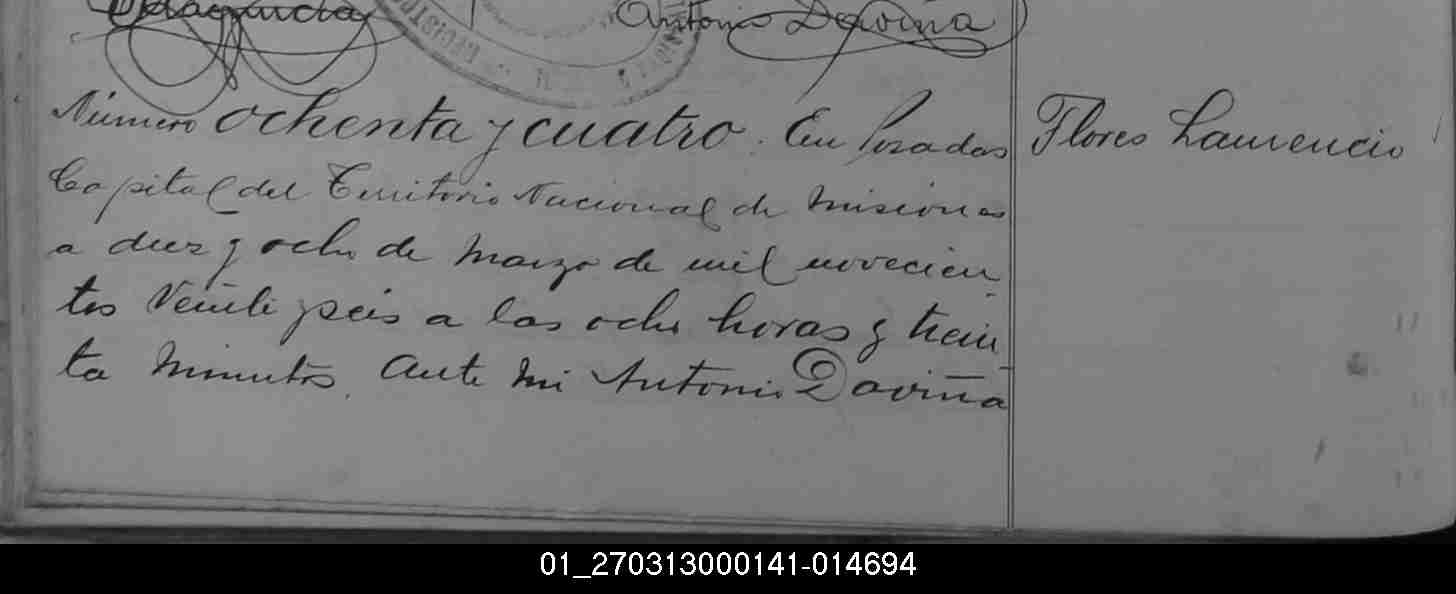 Antonio Daviña
Número ochenta y cuatro. En Posadas
Capital del Territorio Nacional de Misiones
a diez y ocho de Marzo de mil novecien
tos Veinte y seis a las ocho horas y trein
ta Minutos. Ante Mi Antonio Daviña
Flores Laurencio
01_270313000141-014694